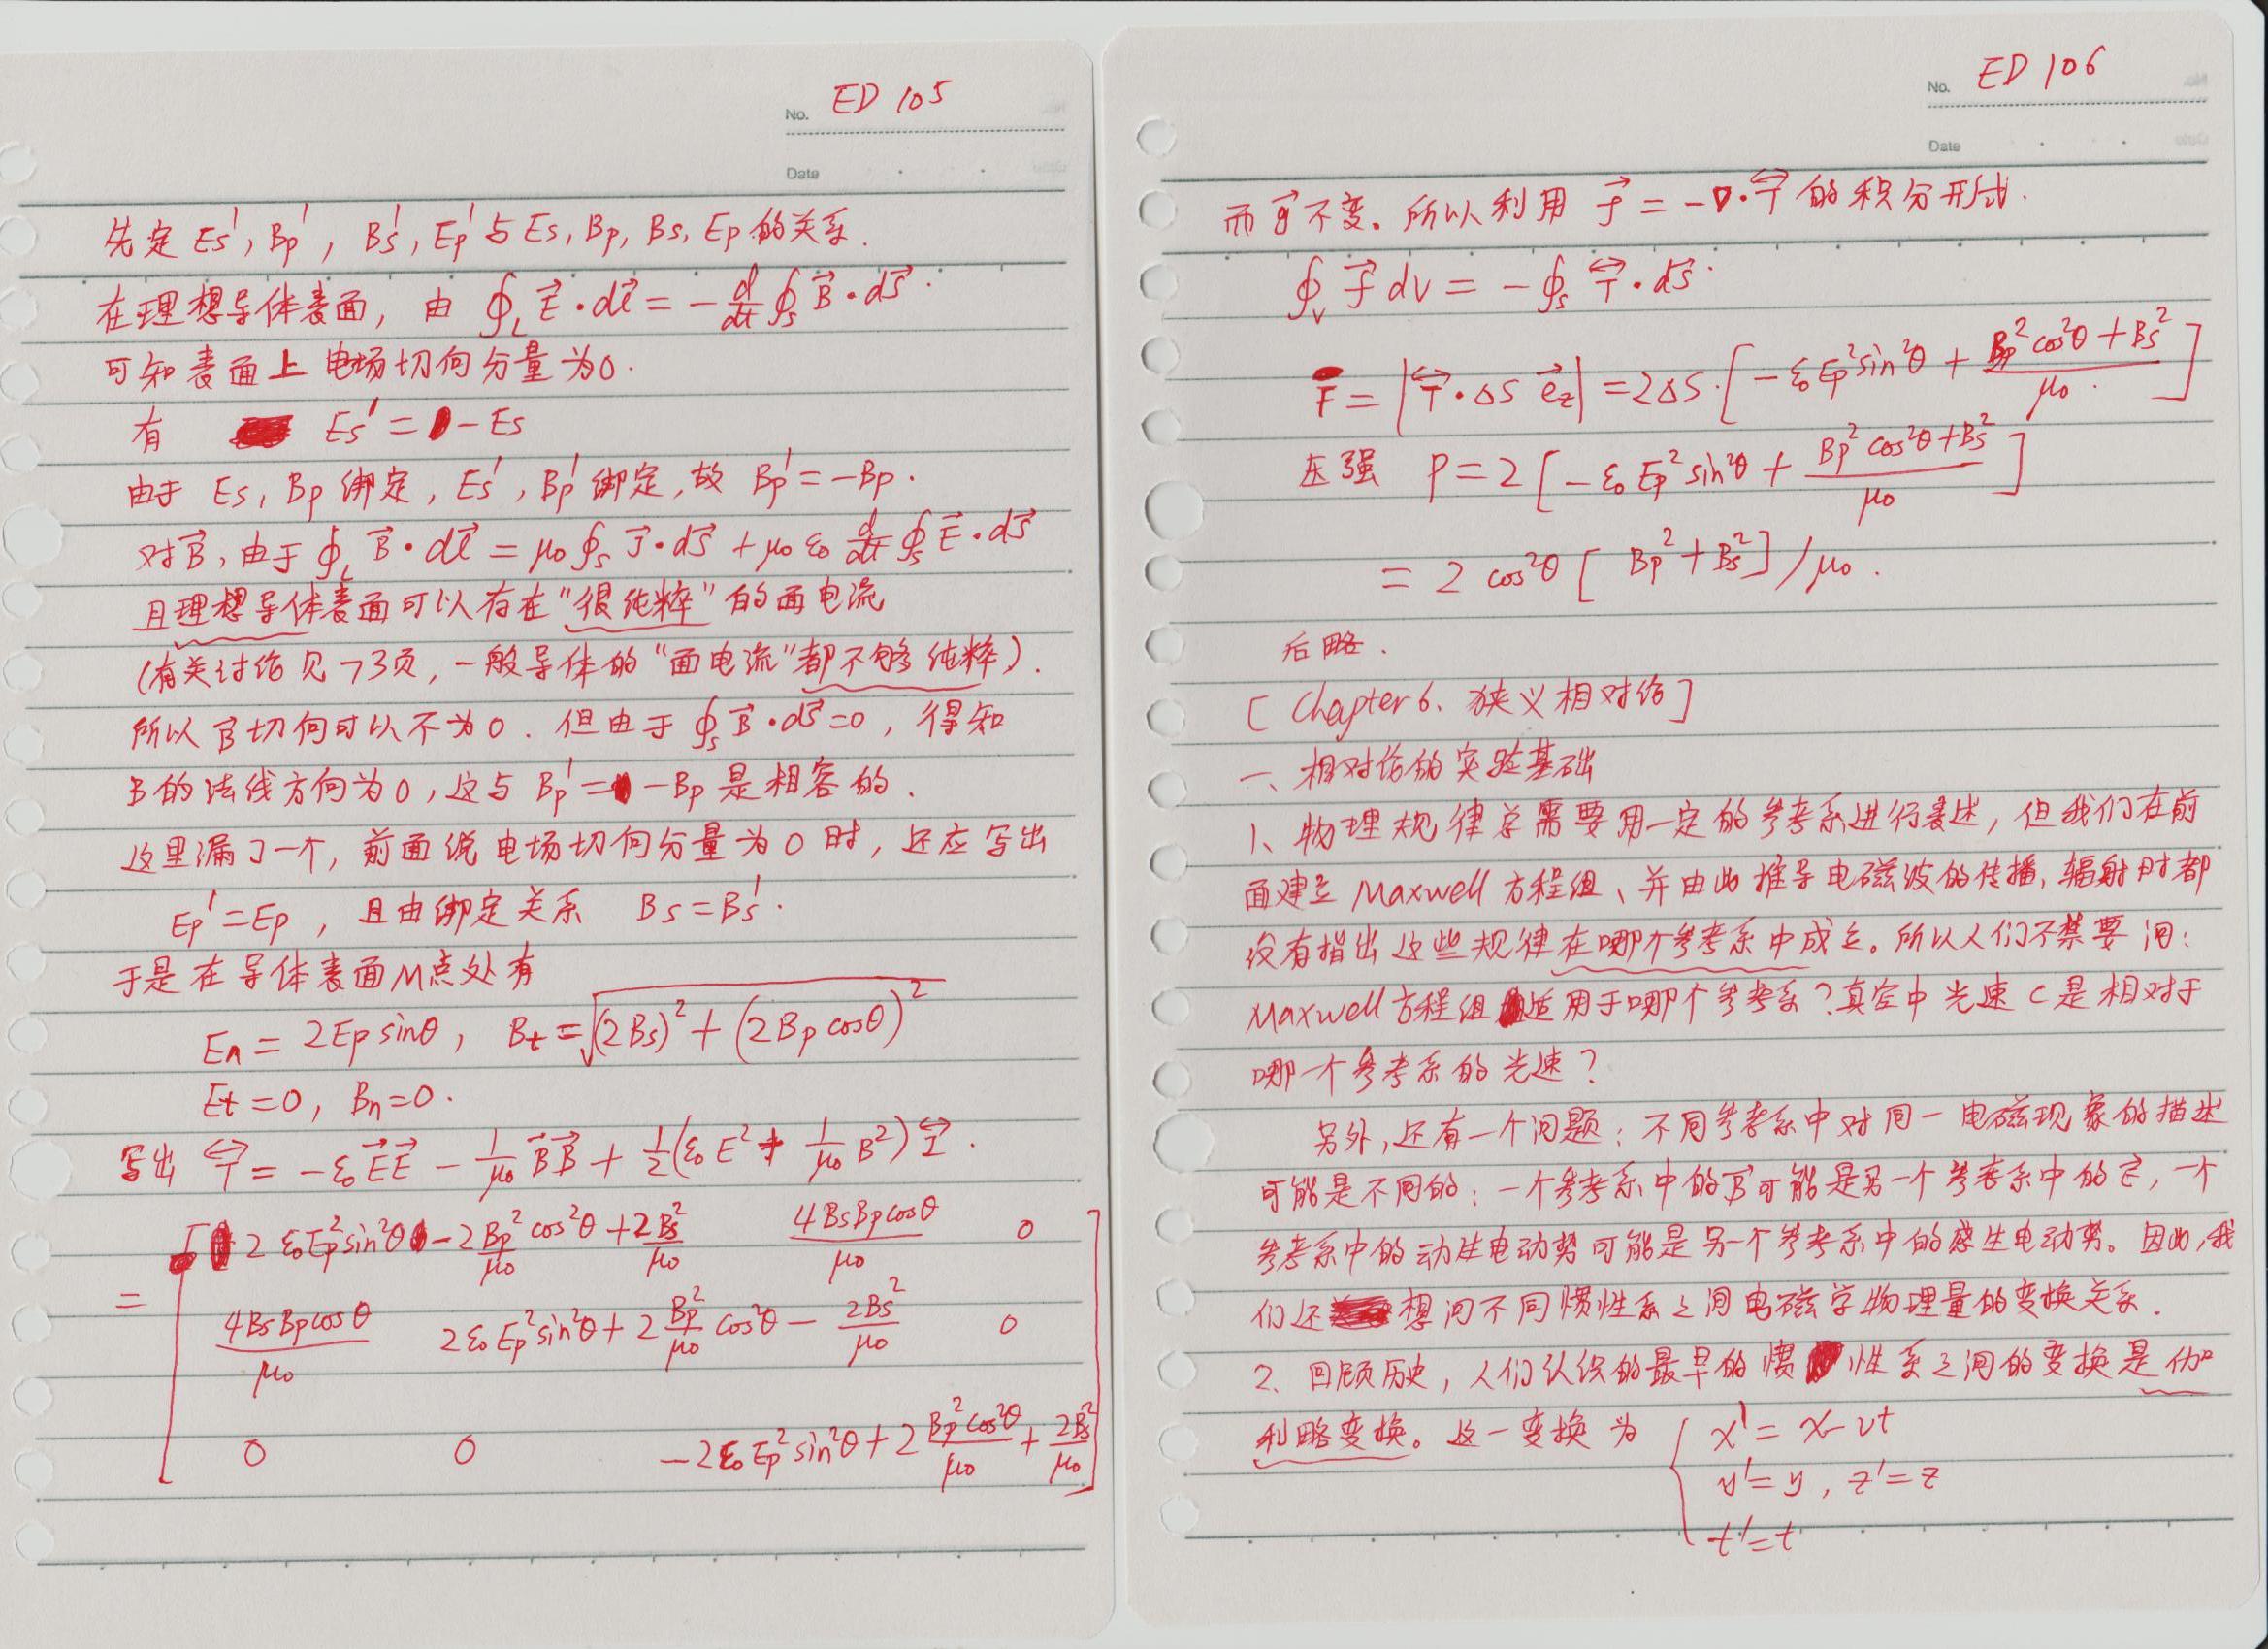 No. ED 105
Date
先定 Es', Bp', Bs', Ep' 与 Es, Bp, Bs, Ep 的关系.
在理想导体表面, 由 ∮_L E⃗·dl⃗ = -d/dt ∮_S B⃗·dS⃗.
可知表面上电场切向分量为0.
有 Es' = -Es
由于 Es, Bp 绑定, Es', Bp' 绑定, 故 Bp' = -Bp.
对B⃗, 由于 ∮_L B⃗·dl⃗ = μ₀∮_S J⃗·dS⃗ + μ₀ε₀ d/dt ∮_S E⃗·dS⃗
且理想导体表面可以存在"很纯粹"的面电流
(有关讨论见73页, 一般导体的"面电流"都不够纯粹).
所以B⃗切向可以不为0. 但由于 ∮_S B⃗·dS⃗=0, 得知
B的法线方向为0, 这与 Bp' = -Bp 是相容的.
这里漏了一个, 前面说电场切向分量为0时, 还应写出
Ep' = Ep, 且由绑定关系 Bs = Bs'.
于是在导体表面M点处有
En = 2Ep sinθ, Bt = √((2Bs)² + (2Bp cosθ)²)
Et = 0, Bn = 0.
写出 T⃡ = -ε₀E⃗E⃗ - 1/μ₀ B⃗B⃗ + 1/2(ε₀E² + 1/μ₀ B²) I⃡.
= [ 2ε₀Ep²sin²θ - 2Bp²/μ₀ cos²θ + 2Bs²/μ₀   4BsBpcosθ/μ₀   0
4BsBpcosθ/μ₀   2ε₀Ep²sin²θ + 2Bp²/μ₀ cos²θ - 2Bs²/μ₀   0
0   0   -2ε₀Ep²sin²θ + 2Bp²cos²θ/μ₀ + 2Bs²/μ₀ ]
No. ED 106
Date
而g⃗不变. 所以利用 f⃗ = -∇·T⃡ 的积分形式.
∮_V f⃗ dV = -∮_S T⃡·dS⃗.
F = |T⃡·ΔS e⃗z| = 2ΔS·[-ε₀Ep²sin²θ + (Bp²cos²θ + Bs²)/μ₀]
压强 P = 2[-ε₀Ep²sin²θ + (Bp²cos²θ + Bs²)/μ₀]
= 2cos²θ[Bp² + Bs²]/μ₀.
后略.
[Chapter 6、狭义相对论]
一、相对论的实验基础
1、物理规律总需要用一定的参考系进行表述, 但我们在前
面建立 Maxwell 方程组、并由此推导电磁波的传播、辐射时都
没有指出这些规律在哪个参考系中成立。所以人们不禁要问:
Maxwell 方程组适用于哪个参考系?真空中光速 c 是相对于
哪一个参考系的光速?
另外, 还有一个问题: 不同参考系中对同一电磁现象的描述
可能是不同的: 一个参考系中的B⃗可能是另一个参考系中的E⃗, 一个
参考系中的动生电动势可能是另一个参考系中的感生电动势。因此, 我
们还想问不同惯性系之间电磁学物理量的变换关系.
2、回顾历史, 人们认识的最早的惯性系之间的变换是伽
利略变换。这一变换为 { x' = x-vt
y' = y, z' = z
t' = t